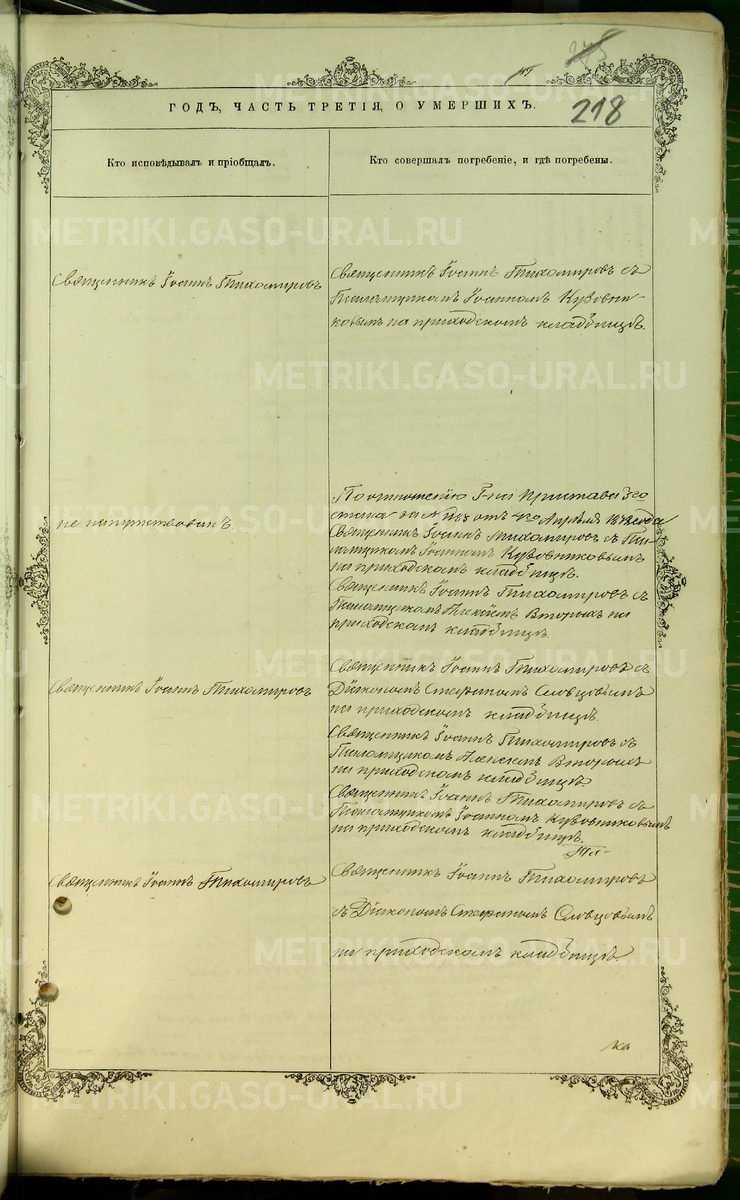 218
ГОДЪ, ЧАСТЬ ТРЕТІЯ, О УМЕРШИХЪ.
Кто исповѣдывалъ и пріобщалъ.
Кто совершалъ погребеніе, и гдѣ погребены.
Священникъ Іоаннъ Тихомировъ
Священникъ Іоаннъ Тихомировъ съ
Псаломщикомъ Іоанномъ Кузовни-
ковымъ на приходскомъ кладбищѣ.
не напутствованъ
По отношенію Г-на Пристава 3го
стана за № отъ Апрѣля
Священникъ Іоаннъ Тихомировъ съ Пса-
ломщикомъ Іоанномъ Кузовниковымъ
на приходскомъ кладбищѣ.
Священникъ Іоаннъ Тихомировъ съ
Псаломщикомъ Алексѣемъ Вторыхъ на
приходскомъ кладбищѣ
Священникъ Іоаннъ Тихомировъ
Священникъ Іоаннъ Тихомировъ съ
Діакономъ Стефаномъ Словцовымъ
на приходскомъ кладбищѣ.
Священникъ Іоаннъ Тихомировъ съ
Псаломщикомъ Алексѣемъ Вторыхъ
на приходскомъ кладбищѣ
Священникъ Іоаннъ Тихомировъ съ
Псаломщикомъ Іоанномъ Кузовниковымъ
на приходскомъ кладбищѣ.
Священникъ Іоаннъ Тихомировъ
Священникъ Іоаннъ Тихомировъ
съ Діакономъ Стефаномъ Словцовымъ
на приходскомъ кладбищѣ
METRIKI.GASO-URAL.RU